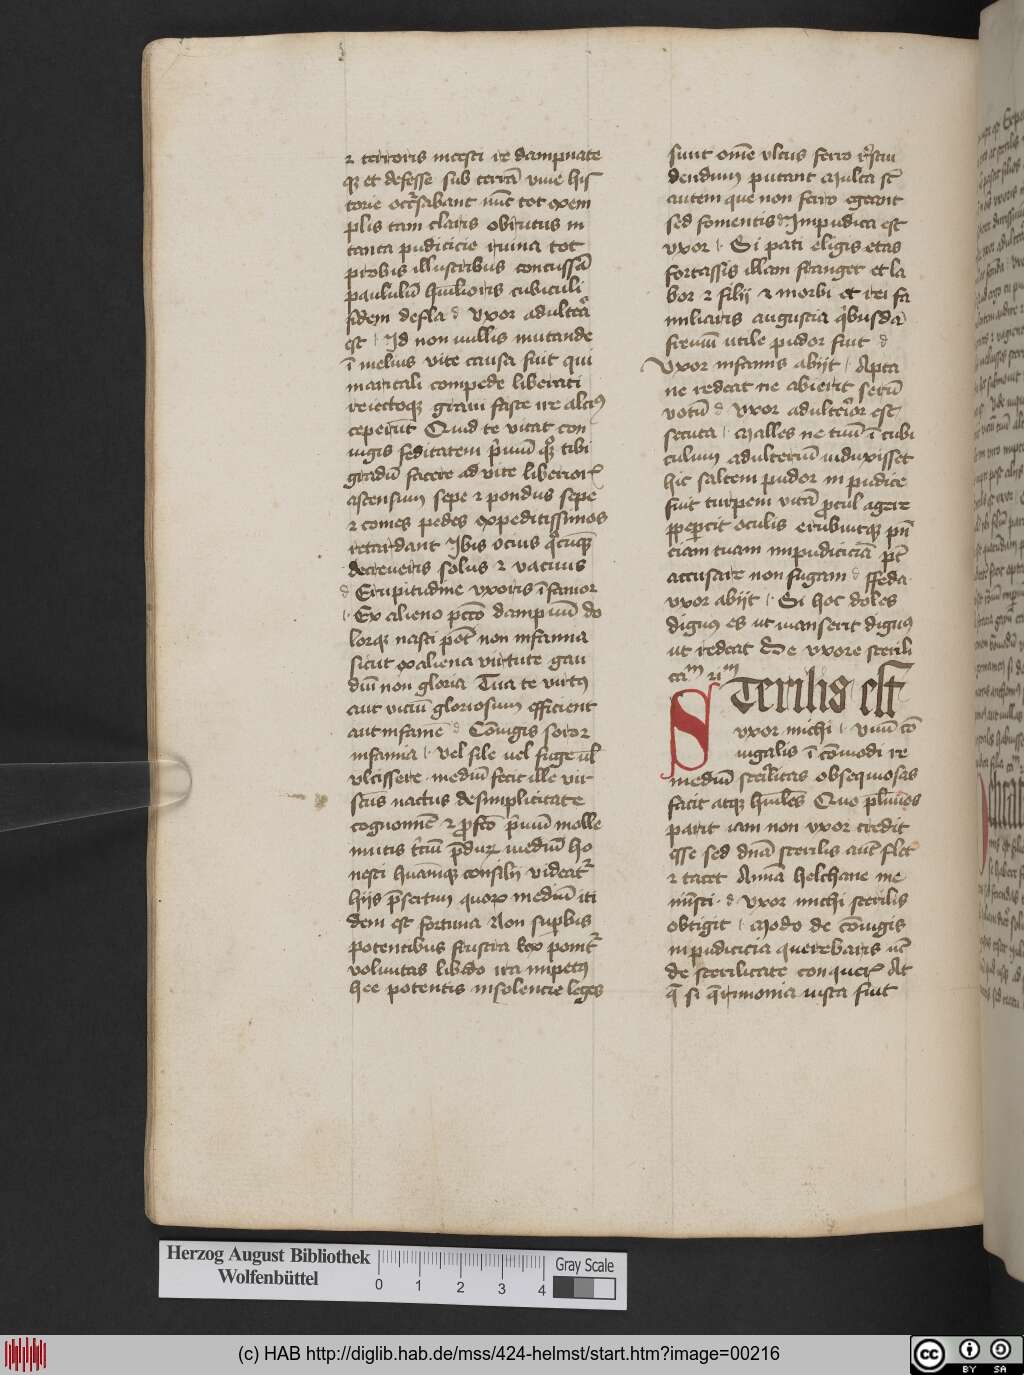 ⁊ terroris incesti re dampnate
qꝫ et defesse sub terrā viue his
torie occ̄sabant nūc tot exem
plis tam claris obrutus in
tanta pudicicie ruina tot
probis illustribus concussā
paululū hūilioris cubiculi
fidem defla d vxor adultēa
est r Id non nullis mutande
ī melius vite causa fuit qui
maritali compede liberati
reiectoqꝫ graui fasce ire alciꝰ
ceperūt Quid te vitat con
iugis feditatem p̄miū qꝫ tibi
gradū facere ad vite liberior
ascensum sepe ⁊ pondus sepe
⁊ comes pedes expeditissimos
retardant Ibis ocius q̄cūqꝫ
decreueris solus ⁊ vacuus
d Eturpitudine vxoris īfamor
r Ex alieno pctō dampnū do
lorqꝫ nasci pot̄ non infamia
sicut exaliena virtute gau
diū non gloria Tua te virtꝰ
aut viciū gloriosum efficient
aut infamē d Cōiugis soror
infamia r vel sile uel fuge ul̄
vlcissere mediū fecit ille vir
scūs nactus desimplicitate
cognomē ⁊ p̄fcō p̄miū molle
inutis t̄ciū p̄duꝝ mediū ho
nesti hūaniqꝫ consilij videat̄
hijs p̄scitum quorꝫ mediū iti
dem est fortuna Non supbus
potentibus frustra lex ponit̄
voluntas libido ira impetꝰ
hee potentis insolencie leges
sunt om̄e vlcus ferro r̄sciu
dendum putant Multa st̄
autem que non ferro egeant
sed fomentis d Impudica est
vxor r Si pati eligis etas
fortassis illam franget et la
bor ⁊ filij ⁊ morbi et rei fa
miliaris augustia q̄busdā
frenū utile pudor fuit d
Vxor infamis abijt r Apta
ne redeat ne abierit serū
votū d vxor adulterior est
secuta r Malles ne tuū ī cubi
culum adulteriū induxisset
hic saltem pudor in pudice
fuit turpem vitā p̄cul agere
pp̄cit oculis erubuitqꝫ pn̄
ciam tuam impudiciciā pt̄
accusare non fugam d ffeda
vxor abijt r Si hoc doles
dignꝰ es ut manserit dignꝰ
ut redeat De vxore sterili
caᵐ riᵐ
Sterilis est
vxor michi r vnū cō
iugalis ī cōmodi re
mediū sterilitas obsequiosas
facit atqꝫ hūiles Que plūios
parit iam non vxor credit
esse sed dn̄ā sterilis aut̄ flet
⁊ tacet Annā helchane me
mīsti d vxor michi sterilis
obtigit r Modo de cōiugis
inpudicicia querebaris nc̄
de sterilitate conquer̄ At
q̄ si q̄rimonia iusta fuit
Herzog August Bibliothek
Wolfenbüttel
0 1 2 3 4
Gray Scale
(c) HAB http://diglib.hab.de/mss/424-helmst/start.htm?image=00216
cc BY SA